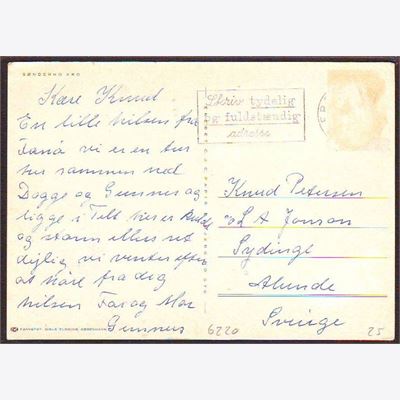 SØNDERHO KRO
Kære Knud.
En lille hilsen fra
Fanø vi er en tur
her sammen med
Dogge og Gunner og
ligge i Telt her er
og storm ellers ret
dejlig vi venter efter
at høre fra dig
hilsen Far og Mor
Gunner
Skriv tydelig
og fuldstændig
adresse
Knud Petersen
c/o L A Jonson
Sydinge
Alunde
Sverige
6220
25